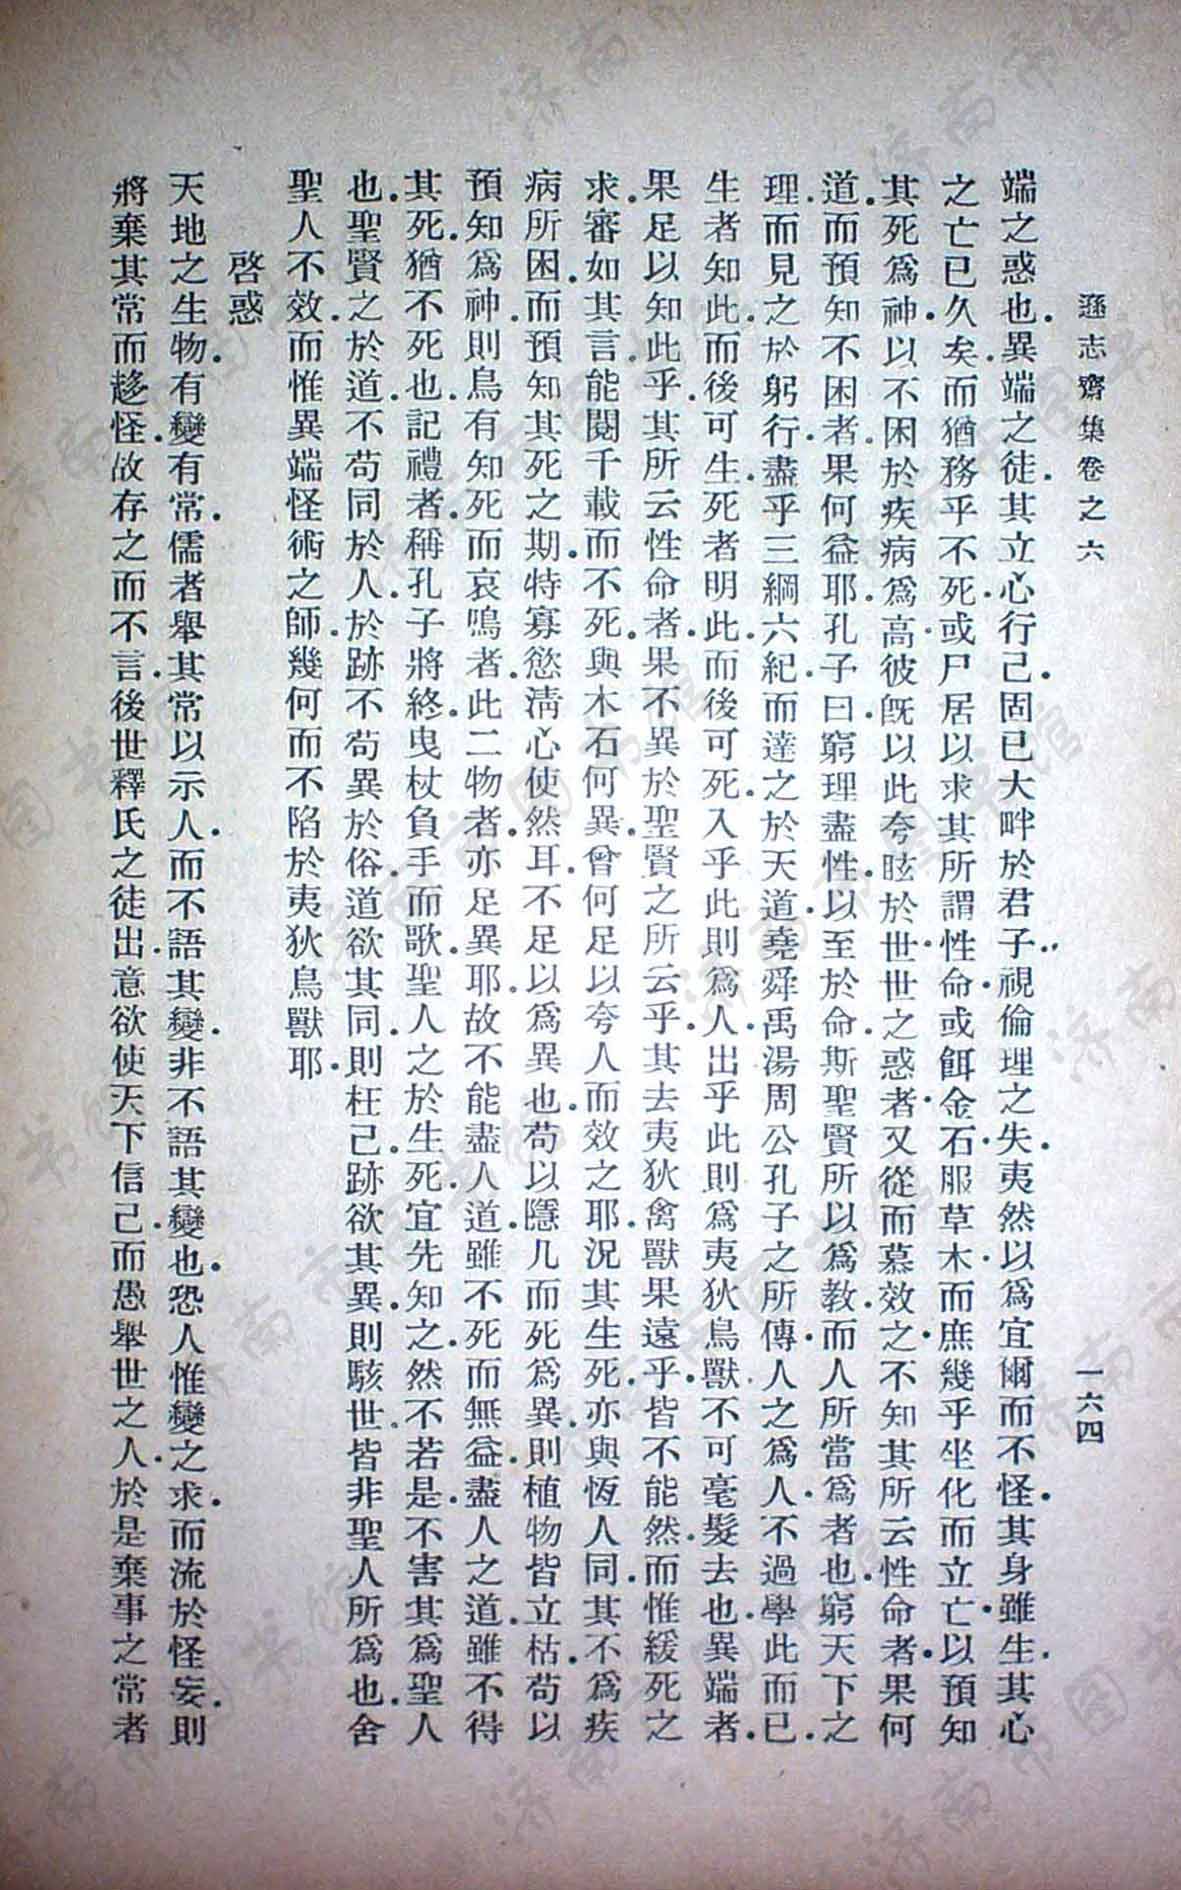 遜志齋集卷之六
一六四
端之惑也.異端之徒.其立心行己.固已大畔於君子.視倫理之失.夷然以爲宜爾而不怪.其身雖生.其心
之亡已久矣.而猶務乎不死.或尸居以求其所謂性命.或餌金石服草木.而庶幾乎坐化而立亡.以預知
其死爲神.以不困於疾病爲高.彼旣以此夸眩於世.世之惑者.又從而慕效之.不知其所云性命者.果何
道.而預知不困者.果何益耶.孔子曰.窮理盡性.以至於命.斯聖賢所以爲教.而人所當爲者也.窮天下之
理.而見之於躬行.盡乎三綱六紀.而達之於天道.堯舜禹湯周公孔子之所傳.人之爲人.不過學此而已.
生者知此.而後可生.死者明此.而後可死.入乎此則爲人.出乎此則爲夷狄鳥獸.不可毫髮去也.異端者.
果足以知此乎.其所云性命者.果不異於聖賢之所云乎.其去夷狄禽獸果遠乎.皆不能然.而惟緩死之
求.審如其言.能閱千載而不死.與木石何異.曾何足以夸人而效之耶.況其生死.亦與恆人同.其不爲疾
病所困.而預知其死之期.特寡慾清心使然耳.不足以爲異也.苟以隱几而死爲異.則植物皆立枯.苟以
預知爲神.則鳥有知死而哀鳴者.此二物者.亦足異耶.故不能盡人道.雖不死而無益.盡人之道.雖不得
其死.猶不死也.記禮者.稱孔子將終.曳杖負手而歌.聖人之於生死.宜先知之.然不若是.不害其爲聖人
也.聖賢之於道.不苟同於人.於跡不苟異於俗.道欲其同.則枉己.跡欲其異.則駭世.皆非聖人所爲也.舍
聖人不效.而惟異端怪術之師.幾何而不陷於夷狄鳥獸耶.
啓惑
天地之生物.有變有常.儒者舉其常以示人.而不語其變.非不語其變也.恐人惟變之求.而流於怪妄.則
將棄其常而趨怪.故存之而不言.後世釋氏之徒出.意欲使天下信己.而愚舉世之人.於是棄事之常者